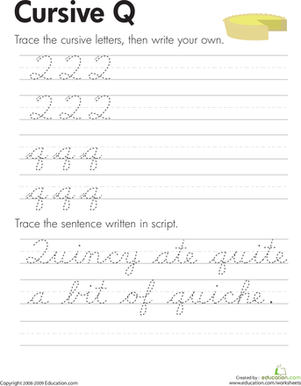 Cursive Q
Trace the cursive letters, then write your own.
Q Q Q
Q Q Q
q q q
q q q
Trace the sentence written in script.
Quincy ate quite
a bit of quiche.
Created by: education.com
Copyright 2008-2009 Education.com
www.education.com/worksheets